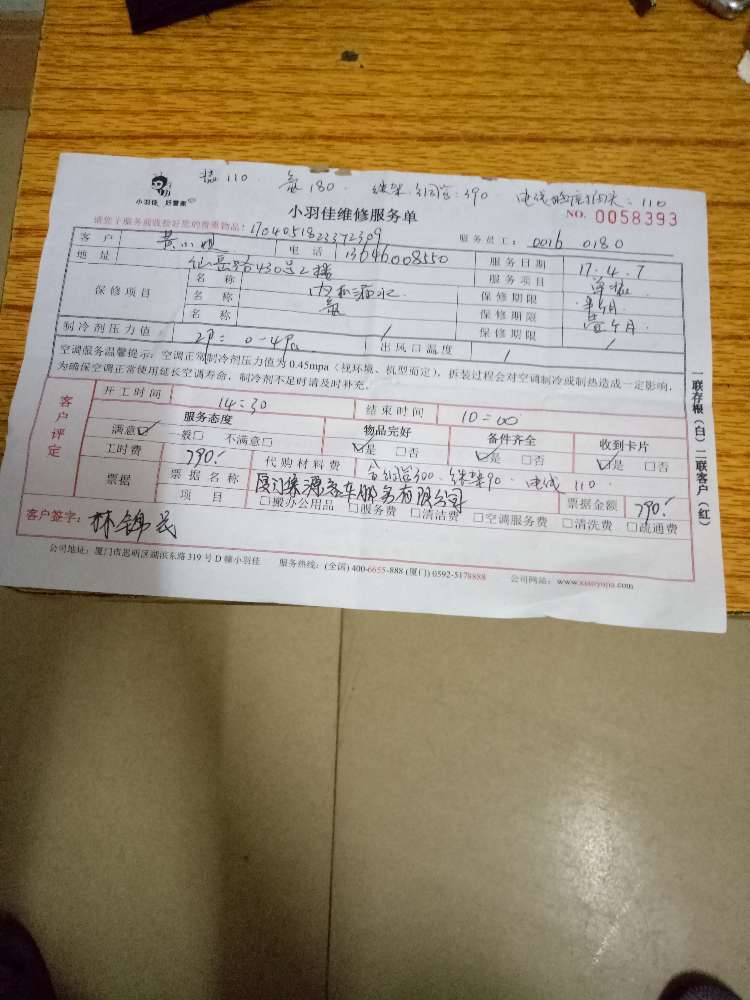 110. 氨180. 铁架.铜管:390 电线 :110
小羽佳 好管家
小羽佳维修服务单
NO. 0058393
请您于服务前收捡好您的贵重物品! 1704051823372309
服务员工: 0016 0180
客户 黄小姐 电话 13646008550 服务日期 17.4.7
地址 仙岳路430号2楼 服务项目
保修项目 名称 内机漏水 保修期限 半个月
名称 氨 保修期限 壹个月
名称 保修期限 /
制冷剂压力值 2P: 0-4Pa / 出风口温度 /
空调服务温馨提示: 空调正常制冷剂压力值为0.45mpa(视环境、机型而定), 拆装过程会对空调制冷或制热造成一定影响,
为确保空调正常使用延长空调寿命, 制冷剂不足时请及时补充。
客户评定
开工时间 14:30 结束时间 10:00
服务态度 物品完好 备件齐全 收到卡片
满意☑ 一般□ 不满意□ ☑是 □否 ☑是 □否 ☑是 □否
工时费 790! 代购材料费 含铜管300. 铁架90. 电线 110.
票据 票据名称 厦门 源客车服务有限公司 票据金额 790!
项目 □搬办公用品 □服务费 □清洁费 □空调服务费 □清洗费 □疏通费
客户签字: 林锦民
公司地址: 厦门市思明区湖滨东路319号D幢小羽佳 服务热线: (全国) 400-6655-888 (厦门) 0592-5178888 公司网站: www.xiaoyujia.com
一联存根(白) 二联客户(红)